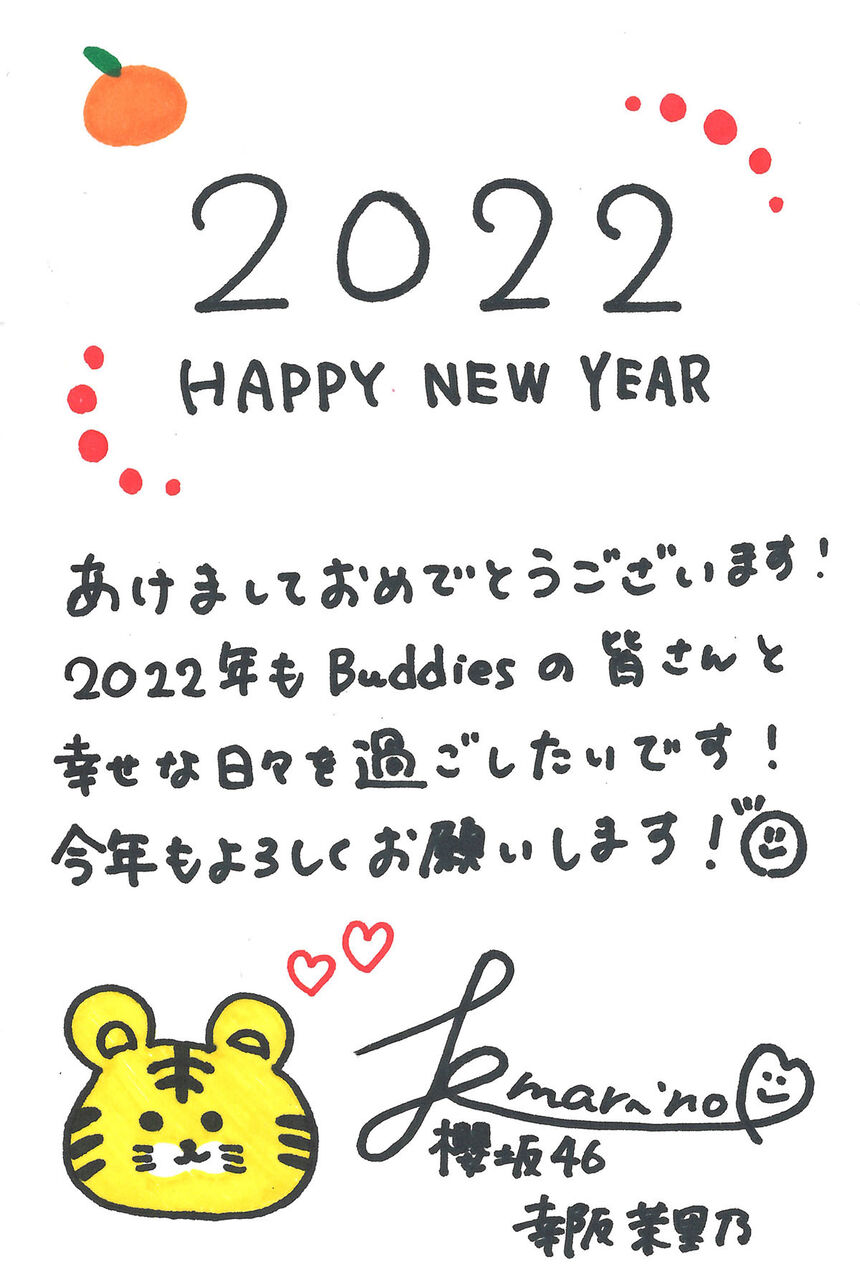 2022
HAPPY NEW YEAR
あけましておめでとうございます!
2022年もBuddiesの皆さんと
幸せな日々を過ごしたいです!
今年もよろしくお願いします!
marino
櫻坂46
幸阪茉里乃